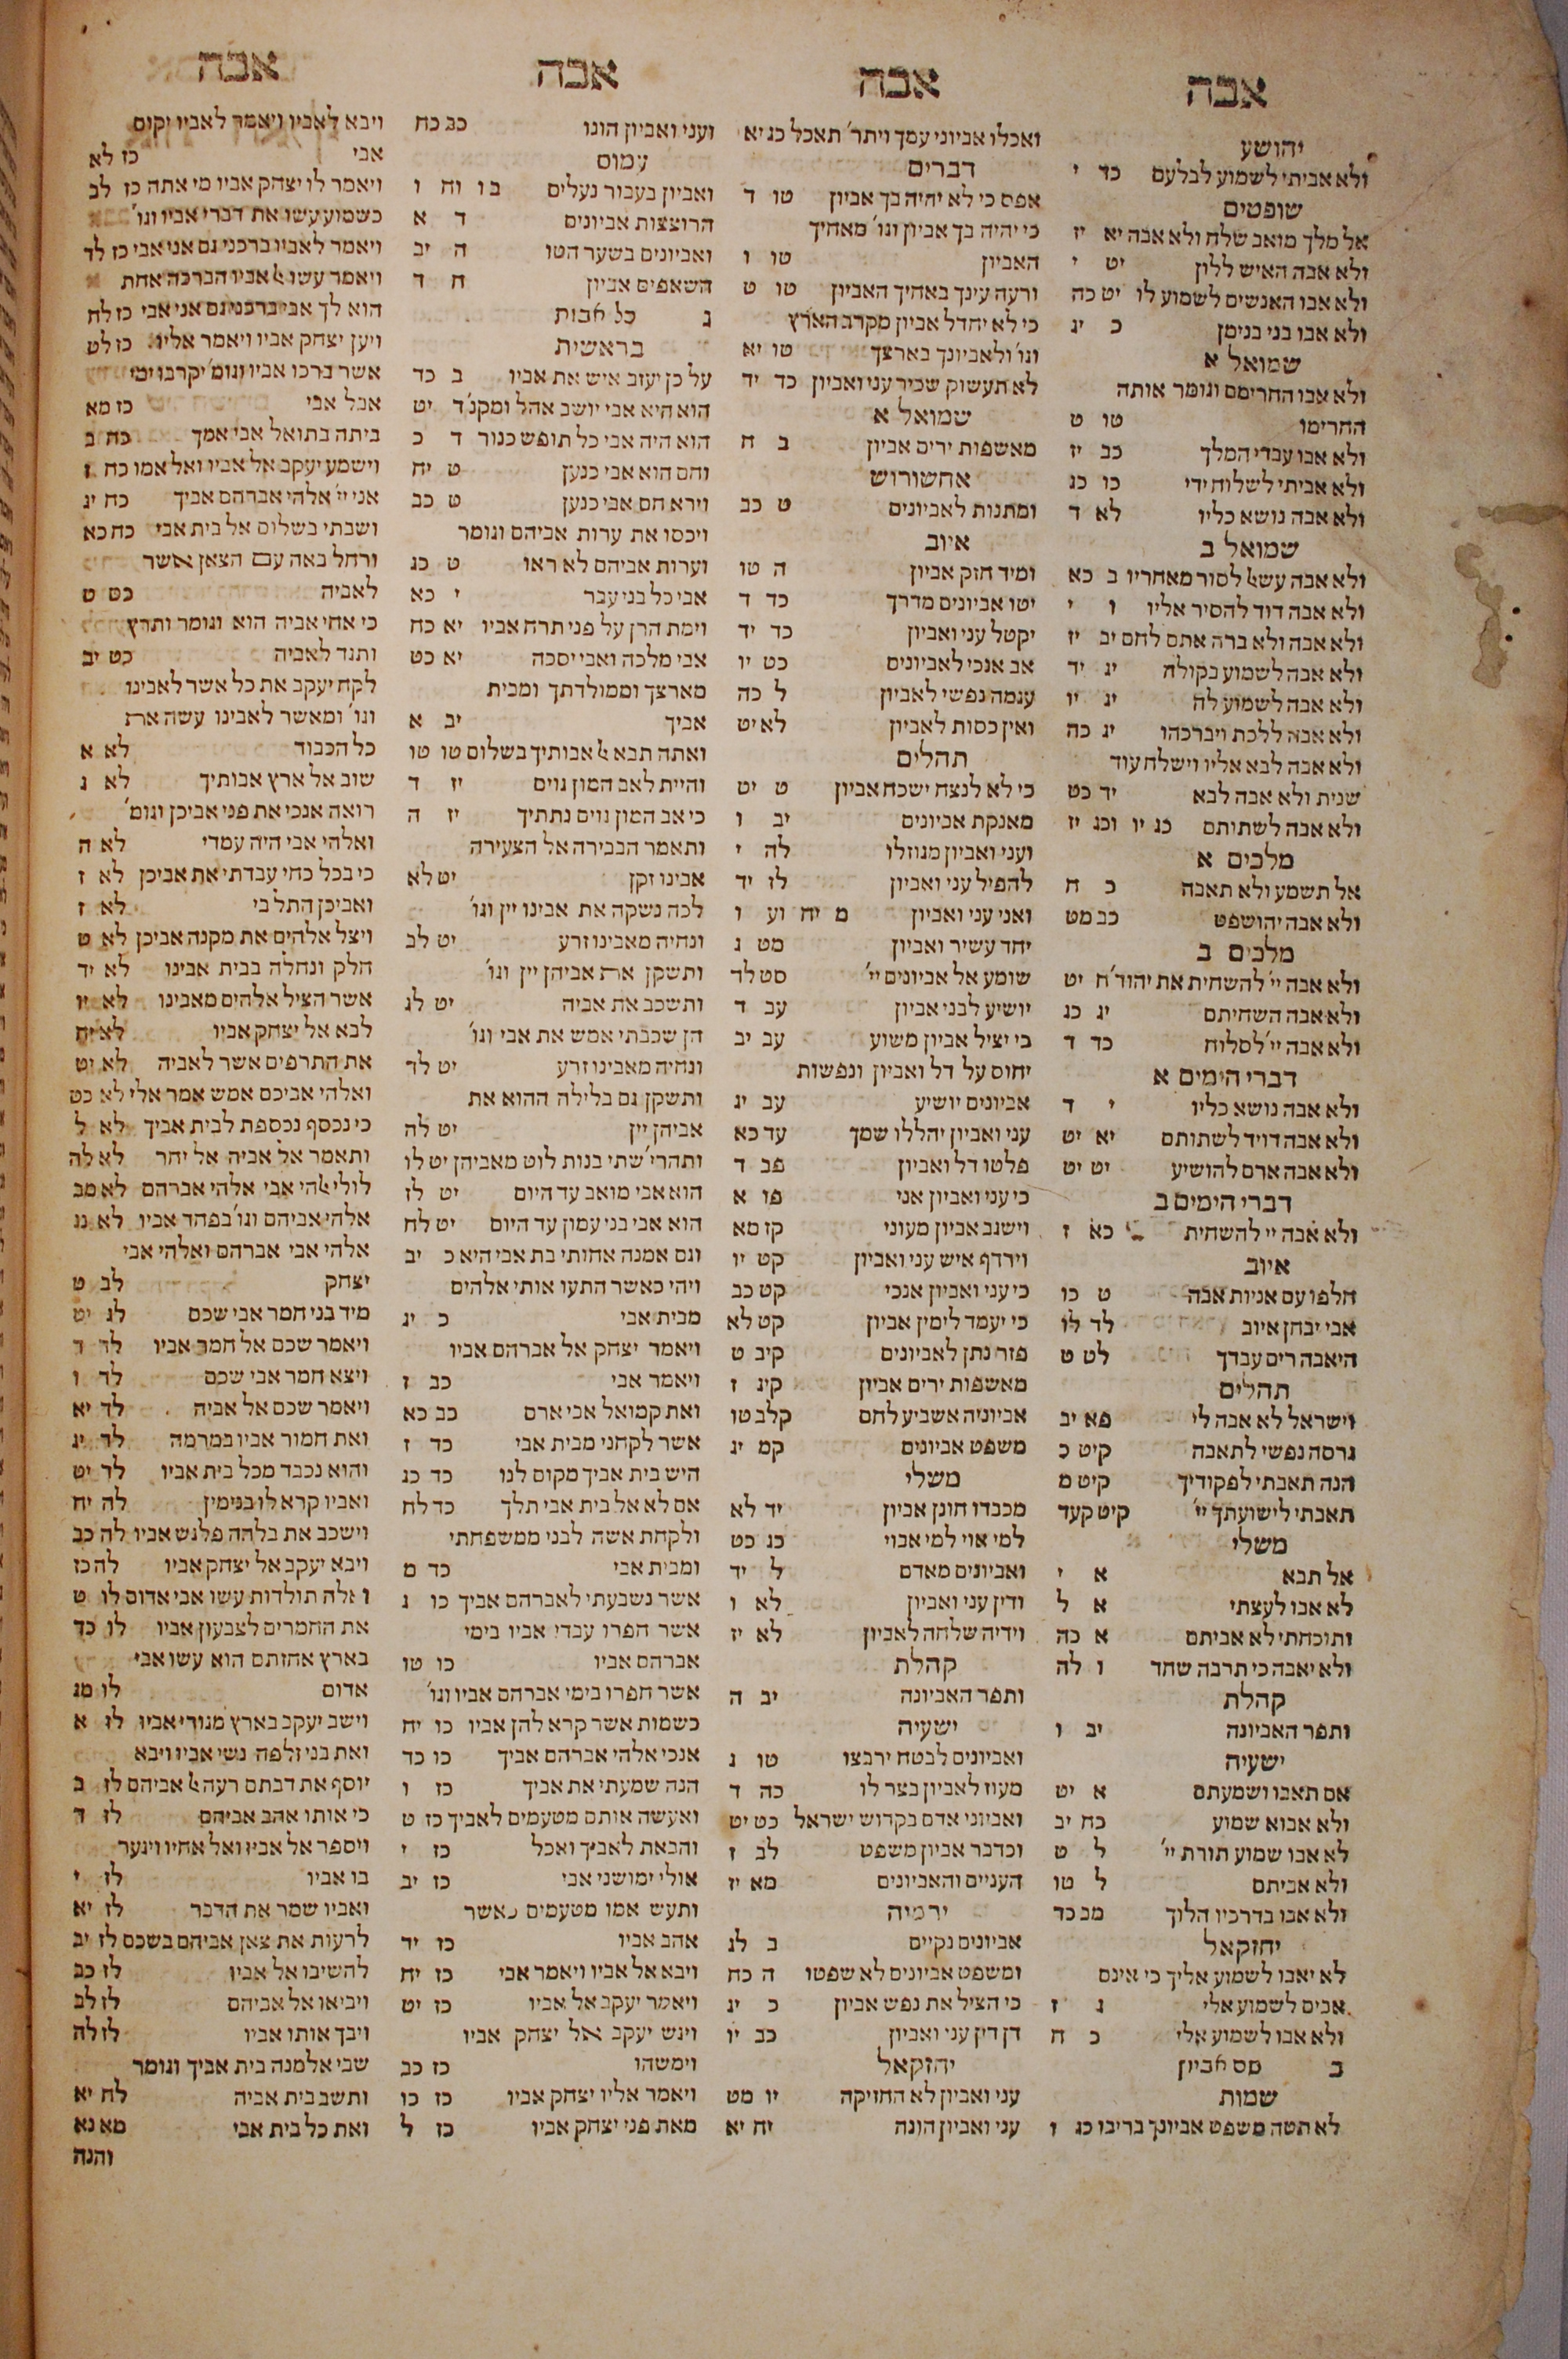 אבה
יהושע
ולא אביתי לשמוע לבלעם כד י
שופטים
אל מלך מואב שלח ולא אבה יא יז
ולא אבה האיש ללון יט י
ולא אבו האנשים לשמוע לו יט כה
ולא אבו בני בנימן כ יג
שמואל א
ולא אבו החרימם וגומר אותה
החרימו טו ט
ולא אבו עבדי המלך כב יז
ולא אביתי לשלוח ידי כו כג
ולא אבה נושא כליו לא ד
שמואל ב
ולא אבה עשאל לסור מאחריו ב כא
ולא אבה דוד להסיר אליו ו י
ולא אבה ולא ברה אתם לחם יב יז
ולא אבה לשמוע בקולה יג יד
ולא אבה לשמוע לה יג יו
ולא אבה ללכת ויברכהו יג כה
ולא אבה לבא אליו וישלח עוד
שנית ולא אבה לבא יד כט
ולא אבה לשתותם כג יו וכג יז
מלכים א
אל תשמע ולא תאבה כ ח
ולא אבה יהושפט כב מט
מלכים ב
ולא אבה יי׳ להשחית את יהוד׳ ח יט
ולא אבה השחיתם יג כג
ולא אבה יי׳ לסלוח כד ד
דברי הימים א
ולא אבה נושא כליו י ד
ולא אבה דויד לשתותם יא יט
ולא אבה ארם להושיע יט יט
דברי הימים ב
ולא אבה יי להשחית כא ז
איוב
חלפו עם אניות אבה ט כו
אבי יבחן איוב לד לו
היאבה רים עבדך לט ט
תהלים
וישראל לא אבה לי פא יב
גרסה נפשי לתאבה קיט כ
הנה תאבתי לפקודיך קיט מ
תאבתי לישועתך יי׳ קיט קעד
משלי
אל תבא א י
לא אבו לעצתי א ל
ותוכחתי לא אביתם א כה
ולא יאבה כי תרבה שחד ו לה
קהלת
ותפר האביונה יב ו
ישעיה
אם תאבו ושמעתם א יט
ולא אבוא שמוע כח יב
לא אבו שמוע תורת יי׳ ל ט
ולא אביתם ל טו
ולא אבו בדרכיו הלוך מב כד
יחזקאל
לא יאבו לשמוע אליך כי אינם
אבים לשמוע אלי ג ז
ולא אבו לשמוע אלי כ ח
ב סם אביון
שמות
לא תטה משפט אביונך בריבו כג ו
אבה
ואכלו אביוני עמך ויתר׳ תאכל כג יא
דברים
אפס כי לא יהיה בך אביון טו ד
כי יהיה בך אביון וגו׳ מאחיך
האביון טו ו
ורעה עינך באחיך האביון טו ט
כי לא יחדל אביון מקרב הארץ
וגו׳ ולאביונך בארצך טו יא
לא תעשוק שכיר עני ואביון כד יד
שמואל א
מאשפות ירים אביון ב ח
אחשורוש
ומתנות לאביונים ט כב
איוב
ומיד חזק אביון ה טו
יטו אביונים מדרך כד ד
יקטל עני ואביון כד יד
אב אנכי לאביונים כט יו
ענמה נפשי לאביון ל כה
ואין כסות לאביון לא יט
תהלים
כי לא לנצח ישכח אביון ט יט
מאנקת אביונים יב ו
ועני ואביון מגוזלו לה י
להפיל עני ואביון לז יד
ואני עני ואביון מ יח וע ו
יחד עשיר ואביון מט ג
שומע אל אביונים יי׳ סט לד
יושיע לבני אביון עב ד
כי יציל אביון משוע עב יב
יחוס על דל ואביון ונפשות
אביונים יושיע עב יג
עני ואביון יהללו שמך עד כא
פלטו דל ואביון פב ד
כי עני ואביון אני פו א
וישגב אביון מעוני קז מא
וירדף איש עני ואביון קט יו
כי עני ואביון אנכי קט כב
כי יעמד לימין אביון קט לא
פזר נתן לאביונים קיב ט
מאשפות ירים אביון קיג ז
אביוניה אשביע לחם קלב טו
משפט אביונים קמ יג
משלי
מכבדו חונן אביון יד לא
למי אוי למי אבוי כג כט
ואביונים מאדם ל יד
ודין עני ואביון לא ו
וידיה שלחה לאביון לא יז
קהלת
ותפר האביונה יב ה
ישעיה
ואביונים לבטח ירבצו טו ג
מעוז לאביון בצר לו כה ד
ואביוני אדם בקדוש ישראל כט יט
וכדבר אביון משפט לב ז
העניים והאביונים מא יז
ירמיה
אביונים נקיים ב לג
ומשפט אביונים לא שפטו ה כח
כי הציל את נפש אביון כ יג
דן דין עני ואביון כב יו
יחזקאל
עני ואביון לא החזיקה יו מט
עני ואביון הונה יח יא
אבה
ועני ואביון הונו כב כח
עמוס
ואביון בעבור נעלים ב ו וח ו
הרוצצות אביונים ד א
ואביונים בשער הטו ה יב
השאפים אביון ח ד
ג כל אבות
בראשית
על כן יעזב איש את אביו ב כד
הוא היא אבי יושב אהל ומקנ׳ ד יט
הוא היה אבי כל תופש כנור ד כ
וחם הוא אבי כנען ט יח
וירא חם אבי כנען ט כב
ויכסו את ערות אביהם וגומר
וערות אביהם לא ראו ט כג
אבי כל בני עבר י כא
וימת הרן על פני תרח אביו יא כח
אבי מלכה ואבי יסכה יא כט
מארצך וממולדתך ומבית
אביך יב א
ואתה תבא אל אבותיך בשלום טו טו
והיית לאב המון גוים יז ד
כי אב המון גוים נתתיך יז ה
ותאמר הבכירה אל הצעירה
אבינו זקן יט לא
לכה נשקה את אבינו יין וגו׳
ונחיה מאבינו זרע יט לב
ותשקן את אביהן יין וגו׳
ותשכב את אביה יט לג
הן שכבתי אמש את אבי וגו׳
ונחיה מאבינו זרע יט לד
ותשקן גם בלילה ההוא את
אביהן יין יט לה
ותהרי׳ שתי בנות לוט מאביהן יט לו
הוא אבי מואב עד היום יט לז
הוא אבי בני עמון עד היום יט לח
וגם אמנה אחותי בת אבי היא כ יב
ויהי כאשר התעו אותי אלהים
מבית אבי כ יג
ויאמר יצחק אל אברהם אביו
ויאמר אבי כב ז
ואת קמואל אבי ארם כב כא
אשר לקחני מבית אבי כד ז
היש בית אביך מקום לנו כד כג
אם לא אל בית אבי תלך כד לח
ולקחת אשה לבני ממשפחתי
ומבית אבי כד מ
אשר נשבעתי לאברהם אביך כו ג
אשר חפרו עבדי אביו בימי
אברהם אביו כו טו
אשר חפרו בימי אברהם אביו וגו׳
כשמות אשר קרא להן אביו כו יח
אנכי אלהי אברהם אביך כו כד
הנה שמעתי את אביך כז ו
ואעשה אותם מטעמים לאביך כז ט
והבאת לאביך ואכל כז י
אולי ימושני אבי כז יב
ותעש אמו מטעמים כאשר
אהב אביו כז יד
ויבא אל אביו ויאמר אבי כז יח
ויאמר יעקב אל אביו כז יט
ויגש יעקב אל יצחק אביו
וימשהו כז כב
ויאמר אליו יצחק אביו כז כו
מאת פני יצחק אביו כז ל
אבה
ויבא לאביו ויאמר לאביו יקום
אבי כז לא
ויאמר לו יצחק אביו מי אתה כז לב
כשמוע עשו את דברי אביו וגו׳
ויאמר לאביו ברכני גם אני אבי כז לד
ויאמר עשו אל אביו הברכה אחת
הוא לך אבי ברכני גם אני אבי כז לח
ויען יצחק אביו ויאמר אליו כז לט
אשר ברכו אביו וגומ׳ יקרבו ימי
אבל אבי כז מא
ביתה בתואל אבי אמך כח ב
וישמע יעקב אל אביו ואל אמו כח ז
אני יי׳ אלהי אברהם אביך כח יג
ושבתי בשלום אל בית אבי כח כא
ורחל באה עם הצאן אשר
לאביה כט ט
כי אחי אביה הוא וגומר ותרץ
ותגד לאביה כט יב
לקח יעקב את כל אשר לאבינו
וגו׳ ומאשר לאבינו עשה את
כל הכבוד לא א
שוב אל ארץ אבותיך לא ג
רואה אנכי את פני אביכן וגומ׳
ואלהי אבי היה עמדי לא ה
כי בכל כחי עבדתי את אביכן לא ז
ואביכן התל בי לא ז
ויצל אלהים את מקנה אביכן לא ט
חלק ונחלה בבית אבינו לא יד
אשר הציל אלהים מאבינו לא יו
לבא אל יצחק אביו לא יח
את התרפים אשר לאביה לא יט
ואלהי אביכם אמש אמר אלי לא כט
כי נכסף נכספת לבית אביך לא ל
ותאמר אל אביה אל יחר לא לה
לולי אלהי אבי אלהי אברהם לא מב
אלהי אביהם וגו׳ בפחד אביו לא נג
אלהי אבי אברהם ואלהי אבי
יצחק לב ט
מיד בני חמר אבי שכם לג יט
ויאמר שכם אל חמר אביו לד ד
ויצא חמר אבי שכם לד ו
ויאמר שכם אל אביה לד יא
ואת חמור אביו במרמה לד יג
והוא נכבד מכל בית אביו לד יט
ואביו קרא לו בנימין לה יח
וישכב את בלהה פלגש אביו לה כב
ויבא יעקב אל יצחק אביו לה כז
ואלה תולדות עשו אבי אדום לו ט
את החמרים לצבעון אביו לו כד
בארץ אחזתם הוא עשו אבי
אדום לו מג
וישב יעקב בארץ מגורי אביו לז א
ואת בני זלפה נשי אביו ויבא
יוסף את דבתם רעה אל אביהם לז ב
כי אותו אהב אביהם לז ד
ויספר אל אביו ואל אחיו ויגער
בו אביו לז י
ואביו שמר את הדבר לז יא
לרעות את צאן אביהם בשכם לז יב
להשיבו אל אביו לז כב
ויביאו אל אביהם לז לב
ויבך אותו אביו לז לה
שבי אלמנה בית אביך וגומר
ותשב בית אביה לח יא
ואת כל בית אבי מא נא
והנה